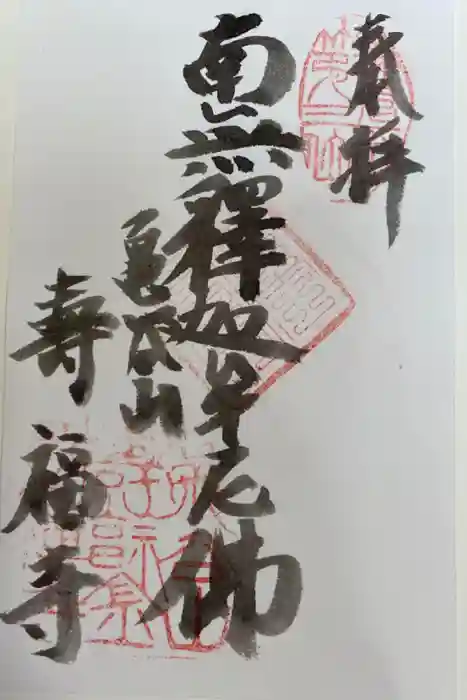 奉拝
南無釋迦牟尼佛
亀谷山
壽福寺